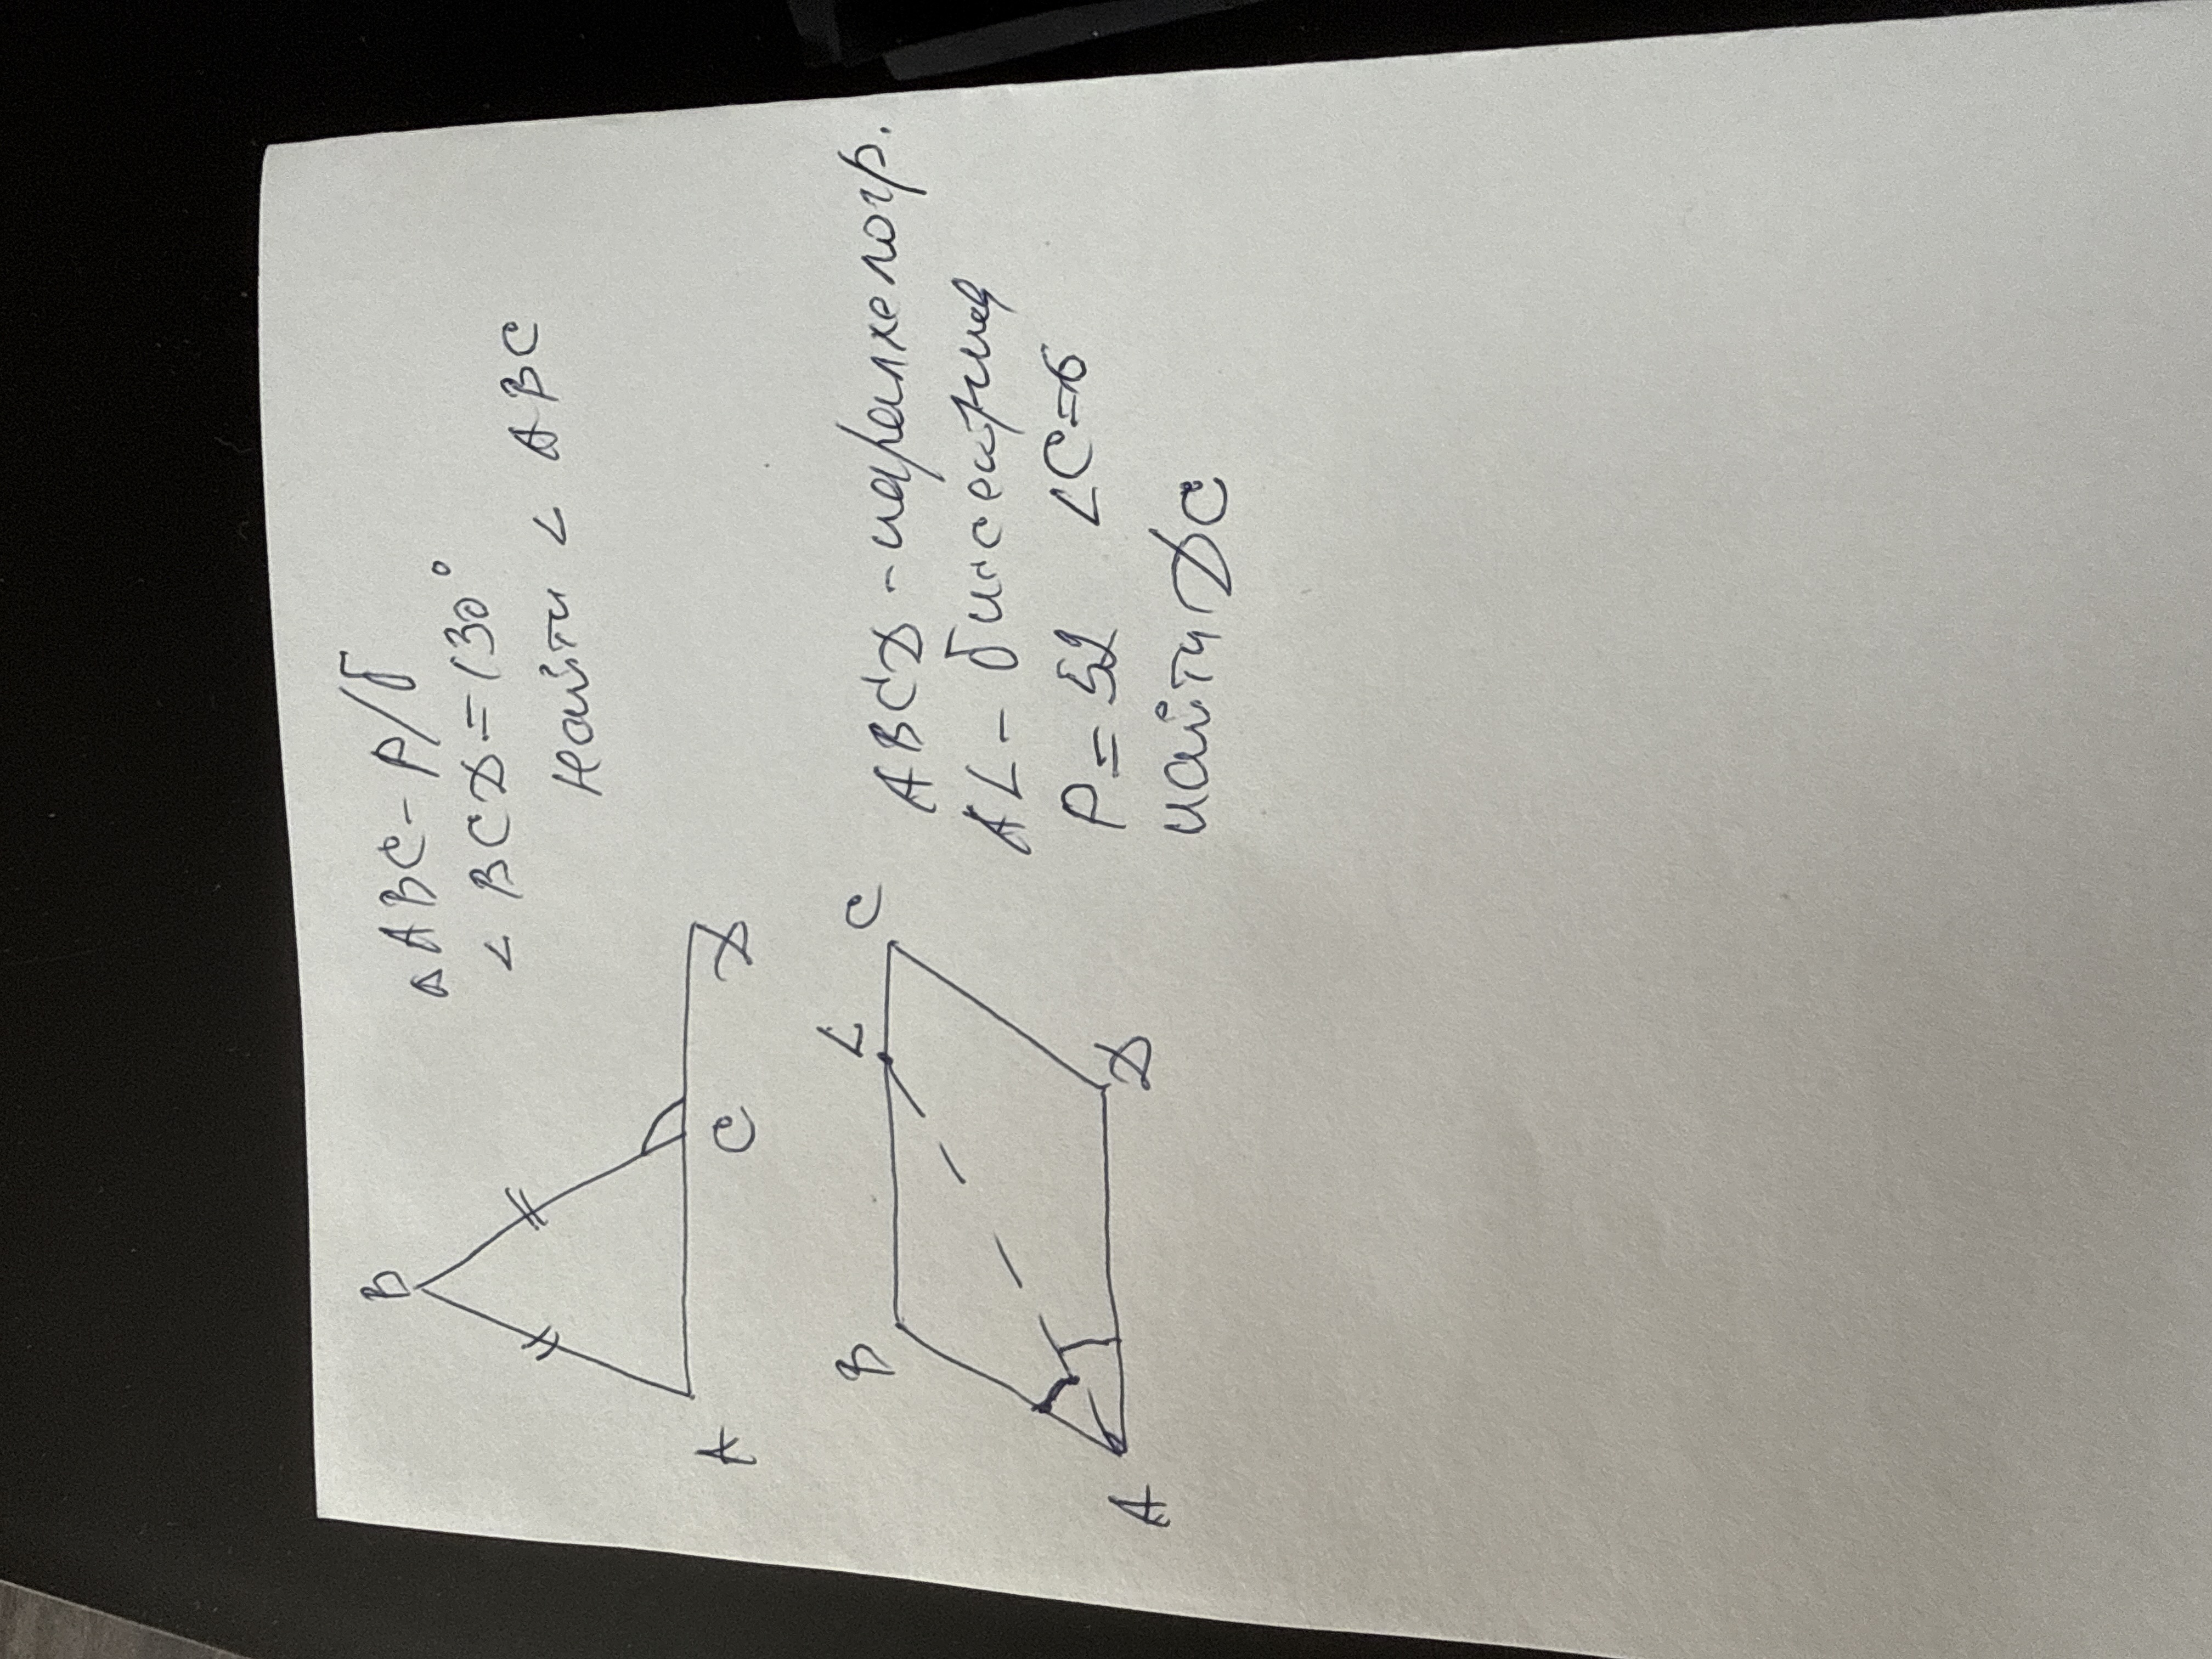 △ABC - р/б
∠BCD = 130°
Найти ∠ABC
B
A
C
D
ABCD - паралхелогр.
AL - биссектриса
P = 52 LC = 6
найти DC
B
L
C
A
D